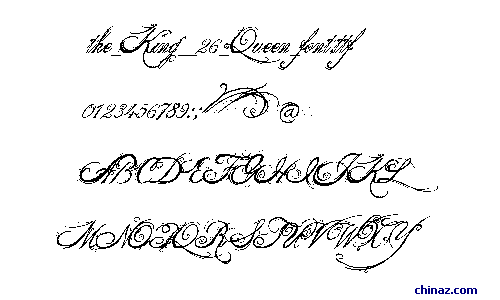 the_King__26_Queen_font.ttf
0123456789:;<=>?@
ABCDEFGHIJKL
MNOPQRSTUVWXY
chinaz.com